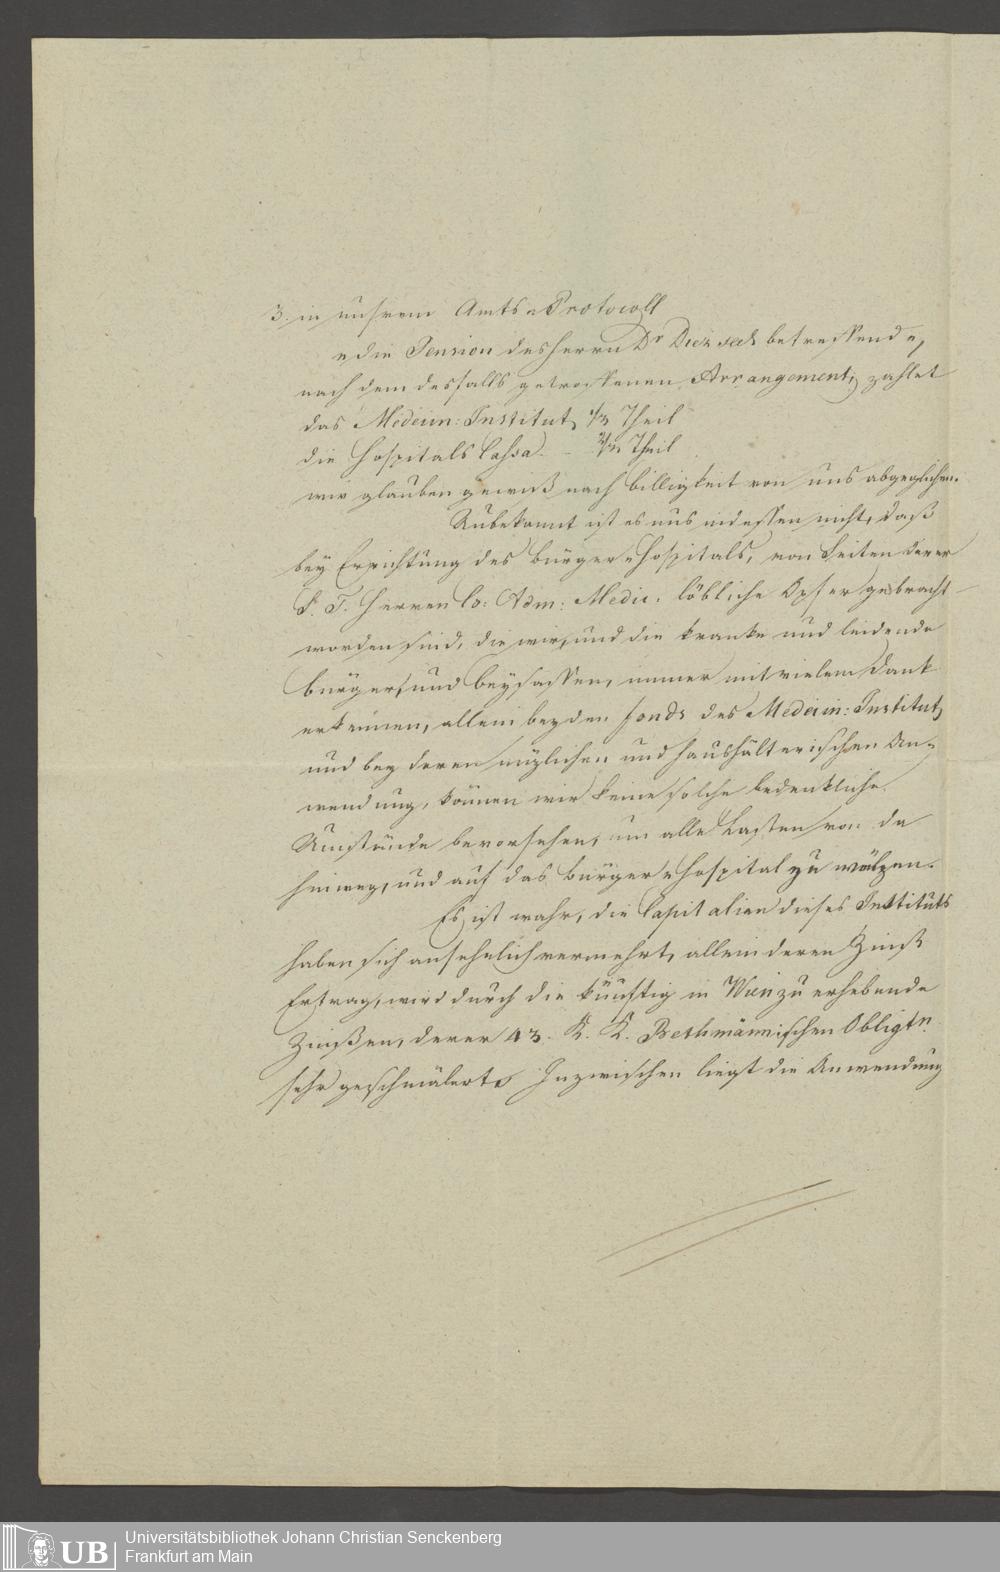 3. in unsrem Amts-Protocoll
„die Pension des Herrn Dr Diez sel. betreffend“,
nach dem desfalls getroffenen Arrangement, zahlet
das Medicin: Institut, 1/3 Theil
die Hospitals Cassa - 2/3 Theil
wir glauben gewiß nach billigkeit von uns abgeglichen.
Unbekannt ist es uns indessen nicht, daß
bey Errichtung des Bürger-Hospitals, von Seiten derer
P. T. Herren Co: Adm: Medic. löbliche Opfer gebracht
worden sind, die wir, und die kranke und leidende
bürger, und beysassen, immer mit vielem Dank
erkennen, allein bey den fonds des Medicin: Instituts,
und bey deren nüzlichen und haushälterischen An-
wendung, können wir keine solche bedenkliche
Umstände bevorsehen, um alle Lasten von da
hinweg, und auf das Bürger-Hospital zu wälzen.
Es ist wahr, die Capitalien dieses Instituts
haben sich ansehnlich vermehrt, allein deren Zinß
Ertrag, wird durch die künftig in Wien zu erhebende
Zinßen, derer 43. K. K. Bethmännischen Obligtn.
sehr geschmälert. Inzwischen liegt die Anwendung
UB
Universitätsbibliothek Johann Christian Senckenberg
Frankfurt am Main